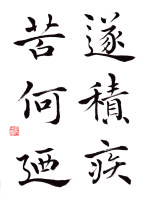 遂積疾
苦何廼